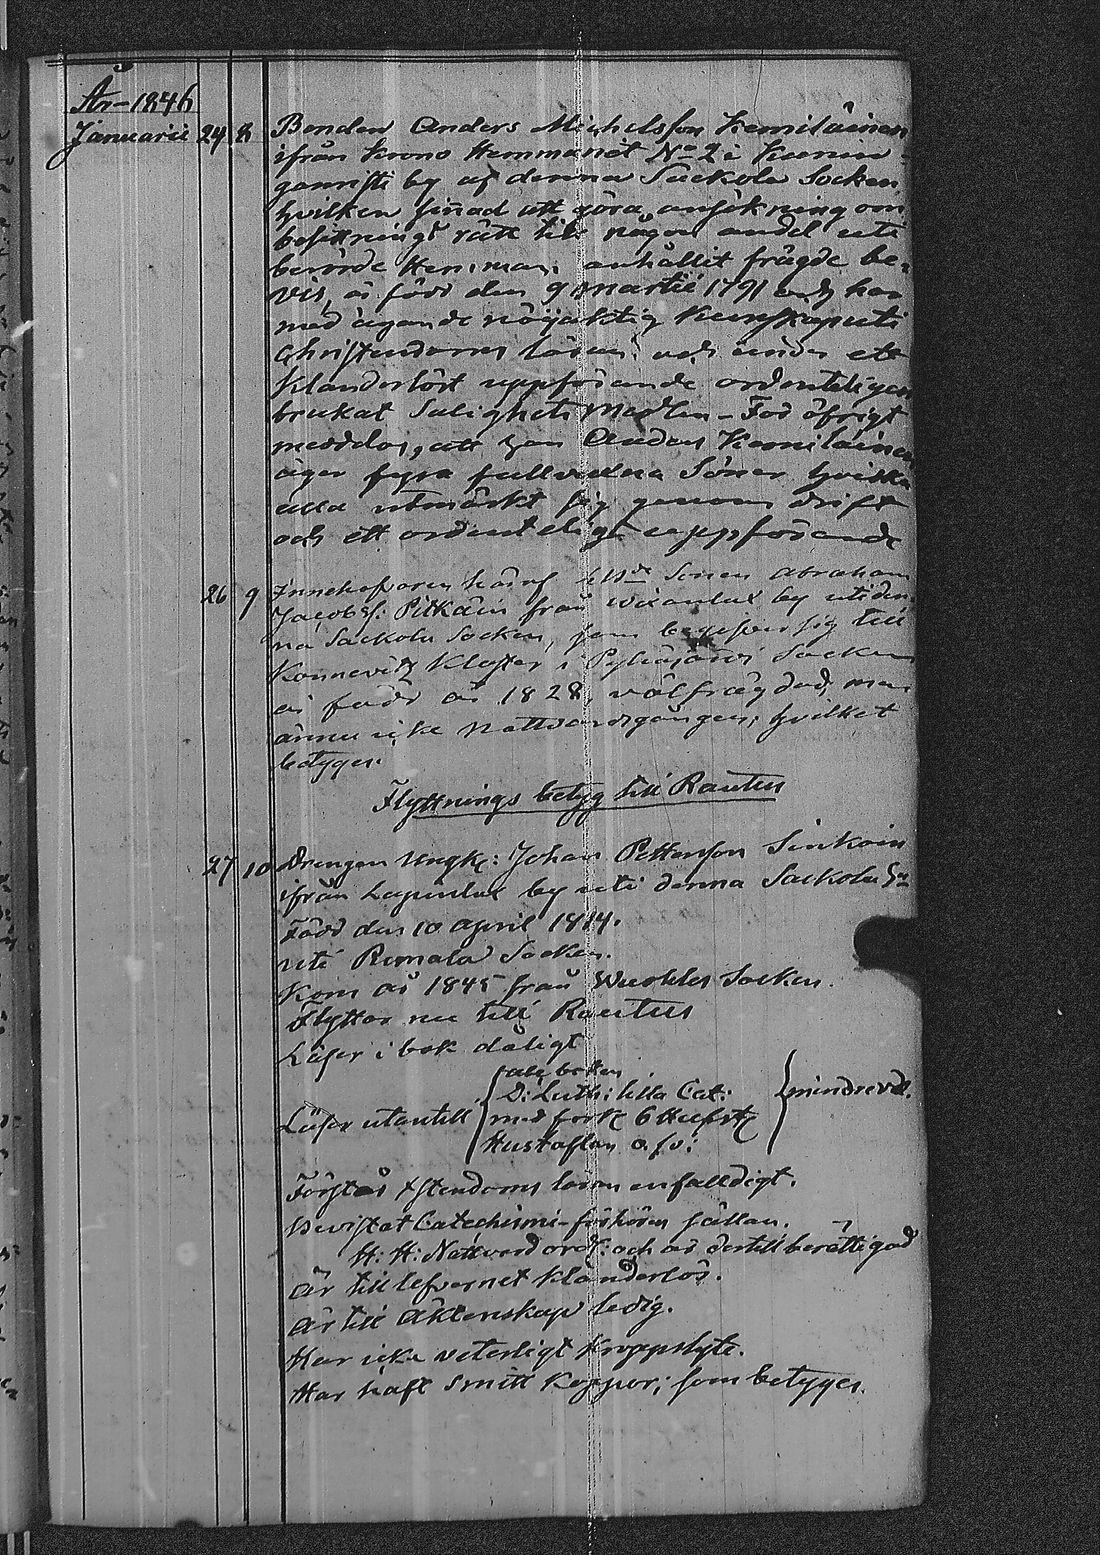 År 1846
Januarii 24 8 Bonden Anders Michelsson Kemiläinen
ifrån Krono Hemmanet No 2 i
by af denna Sackola Socken,
hvilken sinnad att göra ansökning om
besittnings rätt till någon andel uti
berörde Hemman, anhållit frägde be-
vis, är född den 9 Martii 1791 och har
med ägande nöjaktig Kunskap uti
Christendoms läran och under ett
klanderlöst uppförande ordenteligen
brukat Salighets Medlen - För öfrigt
meddelas, att han Anders Kemiläinen
äger fyra fullvuxna Söner hvilka
alla utmärkt sig genom drift
och ett ordenteligt uppförande
26 9 Innehafvaren häraf Sonen Abraham
Jacobss. Pitkäin från by uti den-
na Sackola Socken, som begifver sig till
Konnevitz Kloster i Pyhäjärvi Socken
är född år 1828, välfrägdad, men
ännu icke Nattvardsgången; hvilket
betygar
Flyttnings betyg till Rautus
27 10 Drengen Ungk: Johan Pettersson Sinkoin
ifrån by uti denna Sackola Sn
Född den 10 April 1814.
uti Socken.
Kom år 1845 från Socken.
Flyttar nu till Rautus
Läser i bok dåligt
abc boken
D: Luth: lilla Cat:
Läser utantill med förk: 6 Hufst: mindre väl.
Hustaflan o. s. v:
Förstår Xstendoms läran enfalldigt.
Bevistat Catechismi-förhören sällan.
H: H: Nattvard ord: och är dertill berättigad
Är till lefvernet klanderlös.
Är till Äktenskap ledig.
Har icke veterligt Kroppslyte.
Har haft Smitt Koppor; som betygar.